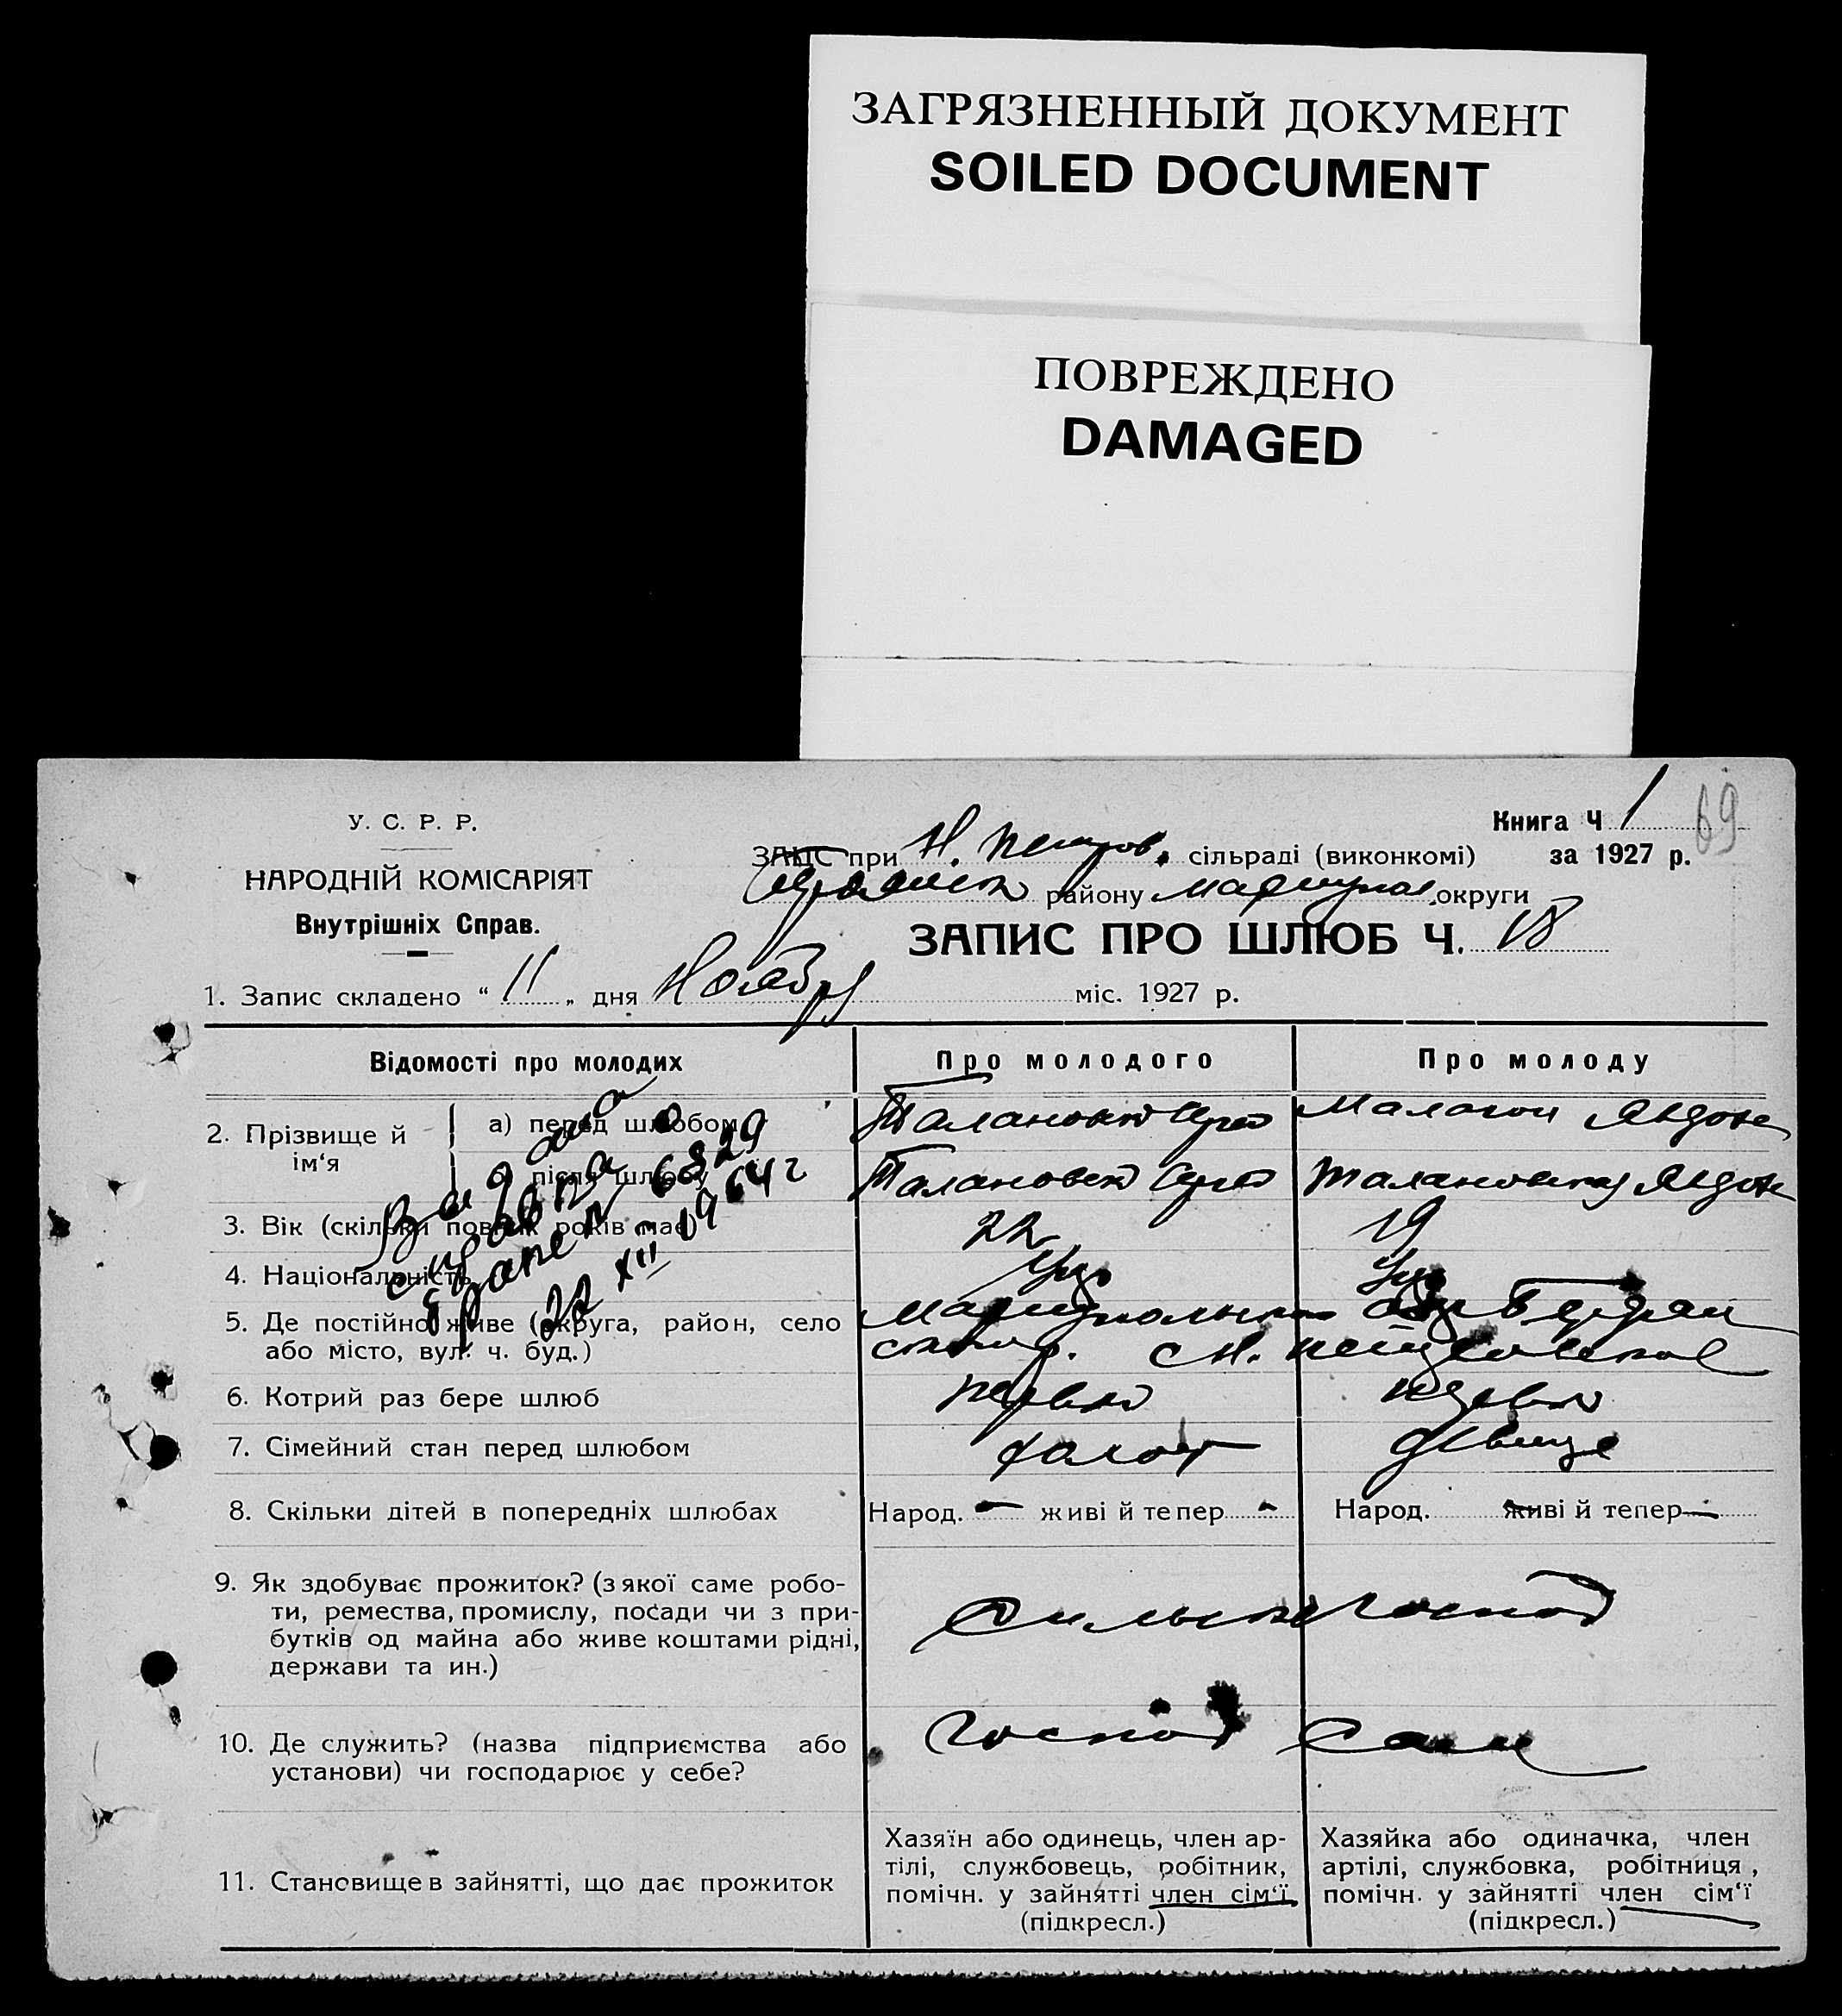 ЗАГРЯЗНЕННЫЙ ДОКУМЕНТ
SOILED DOCUMENT
ПОВРЕЖДЕНО
DAMAGED
У. С. Р. Р.
НАРОДНІЙ КОМІСАРІЯТ
Внутрішніх Справ.
Книга Ч 1
69
ЗАПС при Н. Петров. сільраді (виконкомі) за 1927 р.
району Мариупол. округи
ЗАПИС ПРО ШЛЮБ Ч. 18
1. Запис складено “ 11 „ дня Ноября міс. 1927 р.
Відомості про молодих Про молодого Про молоду
2. Прізвище й ім‘я
а) перед шлюбом Малагон Явдок
після шлюбу
Видана
справка
6829
22 XII 1964 г
3. Вік (скільки повних років має) 22 19
4. Національність Укр Укр
5. Де постійно живе (округа, район, село
або місто, вул. ч. буд.)
6. Котрий раз бере шлюб первий первий
7. Сімейний стан перед шлюбом холост девица
8. Скільки дітей в попередніх шлюбах Народ. — живі й тепер - Народ. живі й тепер —
9. Як здобуває прожиток? (з якої саме робо-
ти, ремества, промислу, посади чи з при-
бутків од майна або живе коштами рідні,
держави та ин.)
10. Де служить? (назва підприємства або
установи) чи господарює у себе?
Господ Сам
11. Становище в зайнятті, що дає прожиток
Хазяїн або одинець, член ар-
тілі, службовець, робітник,
помічн. у зайнятті член сім‘ї
(підкресл.)
Хазяйка або одиначка, член
артілі, службовка, робітниця,
помічн. у зайнятті член сім‘ї
(підкресл.)